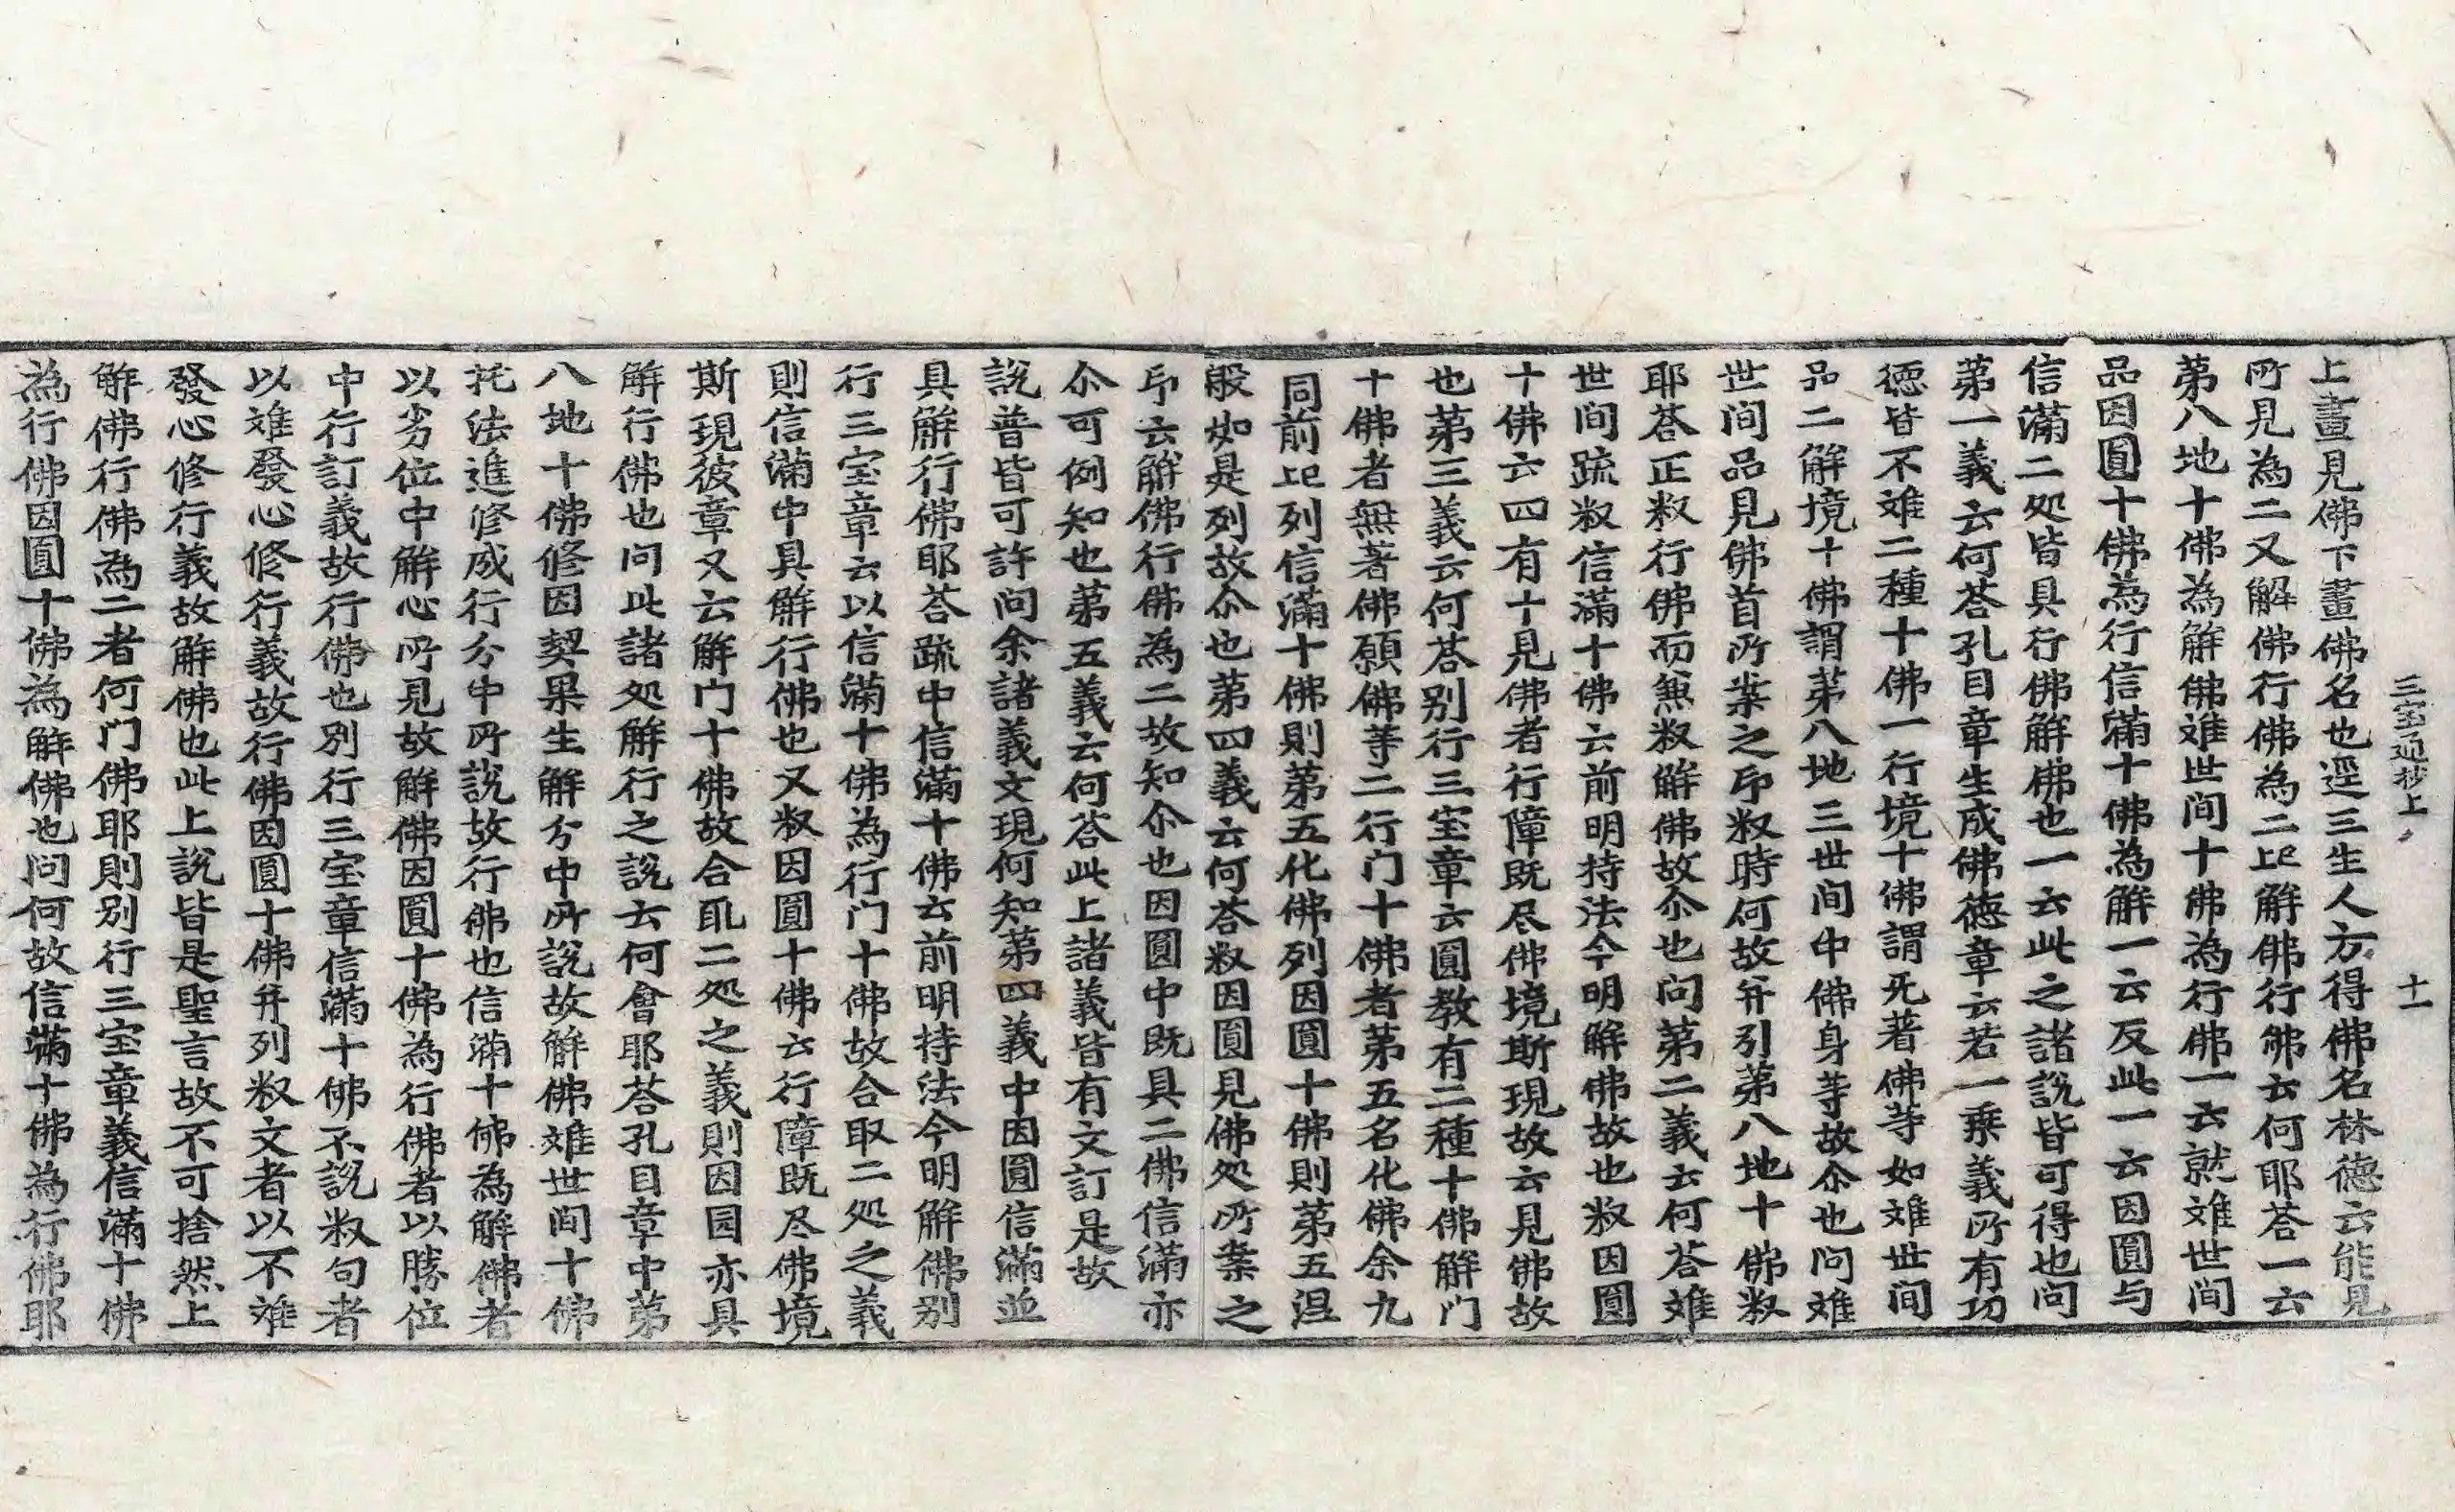 三宝通抄上 十一
上畫見佛下畫佛名也逕三生人方得佛名林德云能見
所見為二又解佛行佛為二記解佛行佛云何耶荅一云
第八地十佛為解佛难世间十佛為行佛一云就难世间
品因圓十佛為行信滿十佛為解一云反此一云因圓与
信滿二処皆具行佛解佛也一云此之諸說皆可得也问
第一義云何荅孔目章生成佛德章云若一乗義所有功
德皆不难二種十佛一行境十佛謂无著佛等如难世间
品二解境十佛謂第八地三世间中佛身等故尒也问难
世间品見佛首所䒭之卽釈時何故并引第八地十佛釈
耶荅正釈行佛而兼釈解佛故尒也问第二義云何荅难
世间疏釈信滿十佛云前明持法今明解佛故也釈因圓
十佛云四有十見佛者行障既尽佛境斯現故云見佛故
也第三義云何荅别行三宝章云圓教有二種十佛解门
十佛者無著佛願佛等二行门十佛者第五名化佛余九
同前記列信滿十佛則第五化佛列因圓十佛則第五涅
般如是列故尒也第四義云何荅釈因圓見佛処所䒭之
卽云解佛行佛為二故知尒也因圓中既具二佛信滿亦
尒可例知也第五義云何荅此上諸義皆有文訂是故
說普皆可許问余諸義文現何知第四義中因圓信滿並
具解行佛耶荅疏中信滿十佛云前明持法今明解佛别
行三宝章云以信滿十佛為行门十佛故合取二処之義
則信滿中具解行佛也又釈因圓十佛云行障既尽佛境
斯現彼章又云解门十佛故合取二処之義則因圓亦具
解行佛也问此諸処解行之說云何會耶荅孔目章中第
八地十佛修因契果生解分中所說故解佛难世间十佛
托法進修成行分中所說故行佛也信滿十佛為解佛者
以劣位中解心所見故解佛因圓十佛為行佛者以勝位
中行訂義故行佛也别行三宝章信滿十佛不說釈句者
以难發心修行義故行佛因圓十佛并列釈文者以不难
發心修行義故解佛也此上說皆是聖言故不可捨然上
解佛行佛為二者何门佛耶則别行三宝章義信滿十佛
為行佛因圓十佛為解佛也问何故信滿十佛為行佛耶